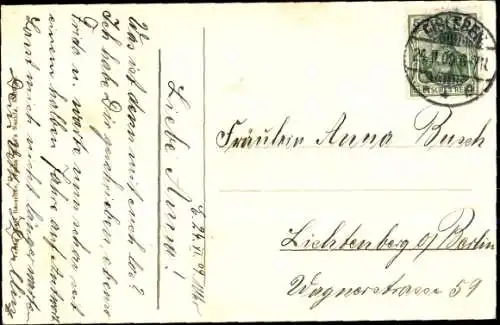 E. 24.VI.09
Liebe Anna!
Was ist denn mit euch los?
Ich habe Dir geschrieben, ebenso
Frida u. warte nun schon seit
einem halben Jahre auf Antwort.
Lasst mich nicht länger warten
EISLEBEN
Fräulein Anna Busch
Lichtenberg b/Berlin
Wagnerstrasse 59